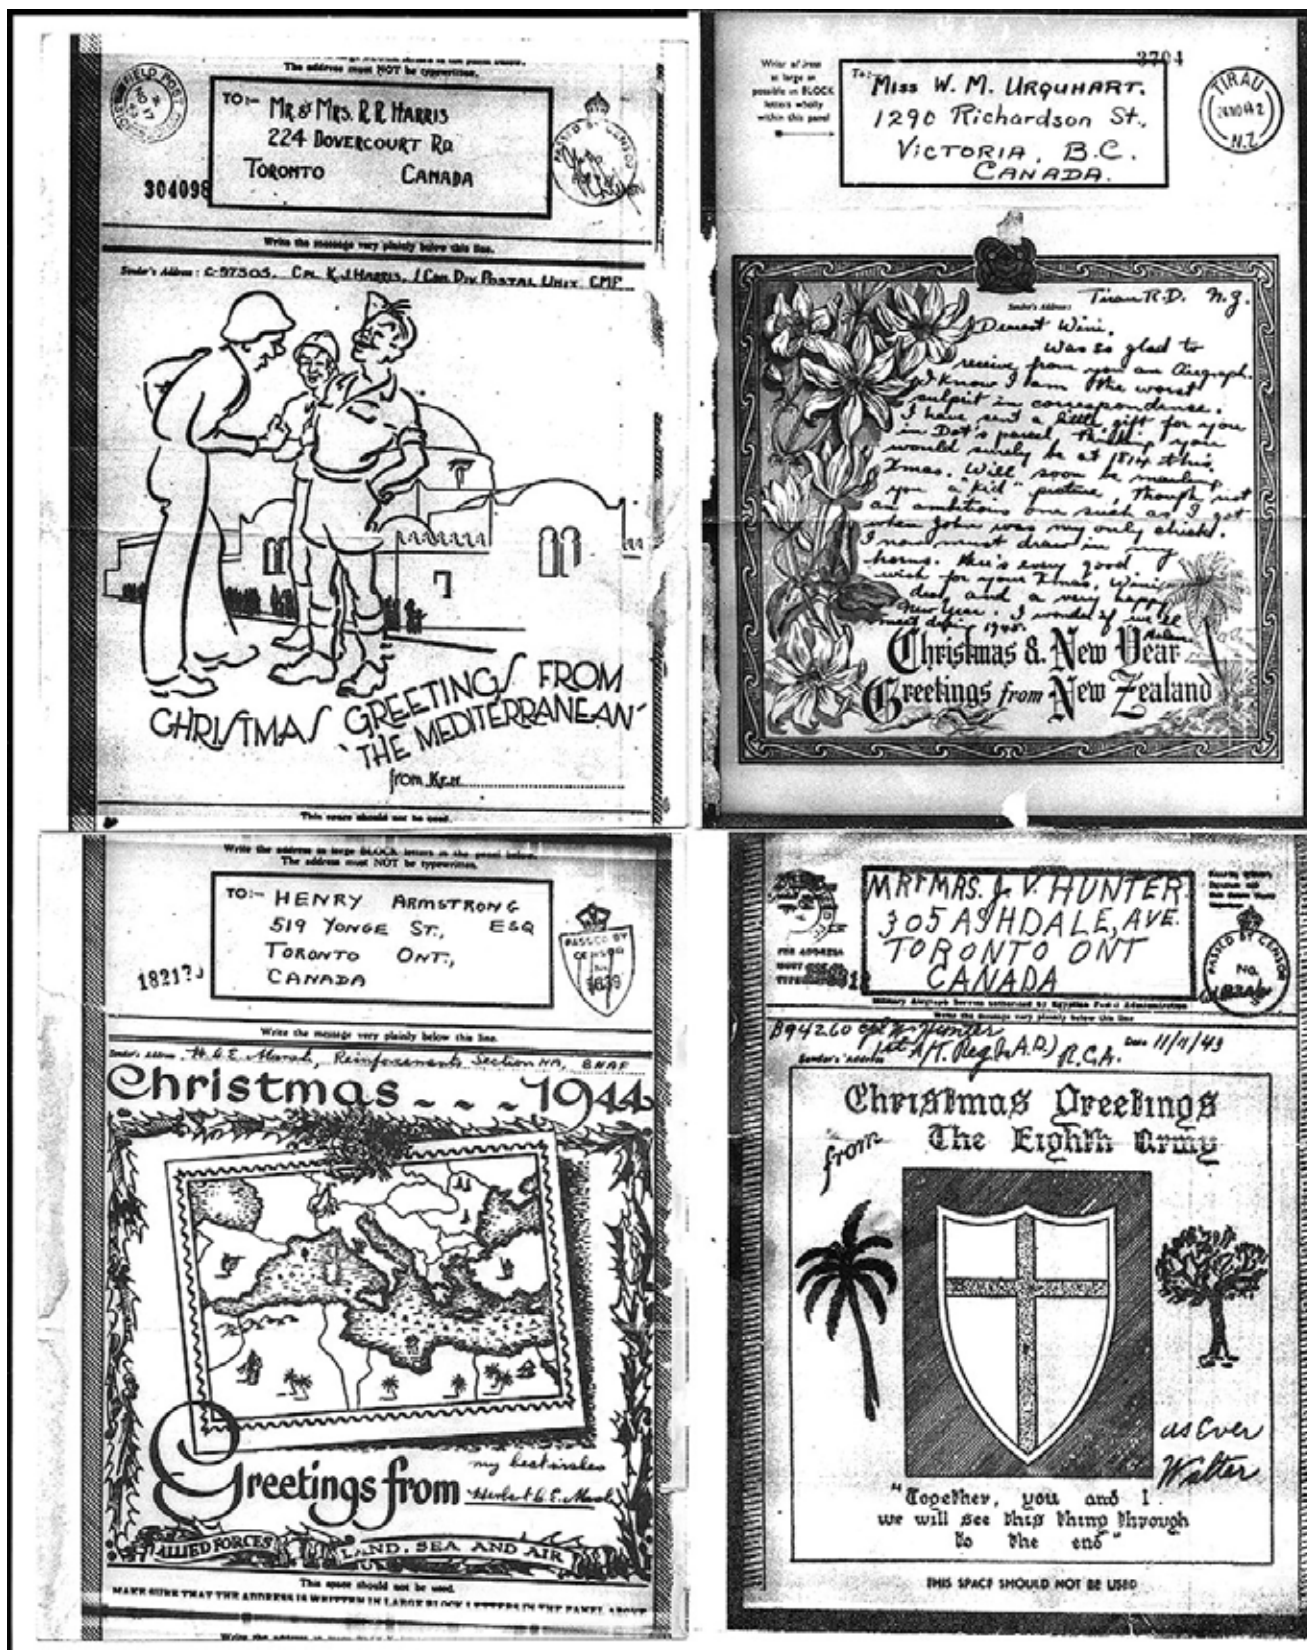 The address must NOT be typewritten.
FIELD POST
TO:- MR & MRS. R R HARRIS
224 DOVERCOURT RD
TORONTO CANADA
PASSED BY CENSOR
304098
Write the message very plainly below this line.
Sender's Address: C-97505, CPL K.J. HARRIS, 1 CAN DIV POSTAL UNIT CMF
CHRISTMAS GREETINGS FROM
'THE MEDITERRANEAN'
from KEN
This space should not be used.
3704
Write address
as large as
possible in BLOCK
letters wholly
within this panel
To:- MISS W. M. URQUHART.
1290 Richardson St.,
VICTORIA, B.C.
CANADA.
TIRAU
N.Z.
Sender's Address: Tirau R.D. N.Z.
Dearest Wini,
Was so glad to
receive from you an Airgraph.
I know I am the worst
culprit in correspondence.
I have sent a little gift for you
in Dot's parcel, thinking you
would surely be at 1814 this
Xmas. Will soon be mailing
you a "kid" picture, though not
an ambitious one such as I got
when John was my only chick.
I now must draw in my
horns. Here's every good
wish for your Xmas, Wini
dear, and a very happy
New Year. I wonder if we'll
meet 1945.
Christmas & New Year
Greetings from New Zealand
Write the address in large BLOCK letters in the panel below.
The address must NOT be typewritten.
TO:- HENRY ARMSTRONG
519 YONGE ST., ESQ
TORONTO ONT.,
CANADA
PASSED BY
CENSOR
Write the message very plainly below this line.
Sender's Address H.C.E. Marsh, Reinforcements Section HQ, BNAF
Christmas - - - 1944
Greetings from
my best wishes
Herbert C.E. Marsh
ALLIED FORCES LAND, SEA AND AIR
This space should not be used.
MAKE SURE THAT THE ADDRESS IS WRITTEN IN LARGE BLOCK LETTERS IN THE PANEL ABOVE
MR & MRS. J. V. HUNTER
305 ASHDALE, AVE.
TORONTO ONT
CANADA
THE ADDRESS
MUST NOT BE
PASSED BY CENSOR
No.
Military Airgraph Service authorised by Egyptian Postal Administration
Write the message very plainly below this line
B94260 Cpl W. Hunter
Sender's Address
R.C.A.
Date 11/11/43
Christmas Greetings
from The Eighth Army
as Ever
Walter
"Together, you and I
we will see this thing through
to the end"
THIS SPACE SHOULD NOT BE USED